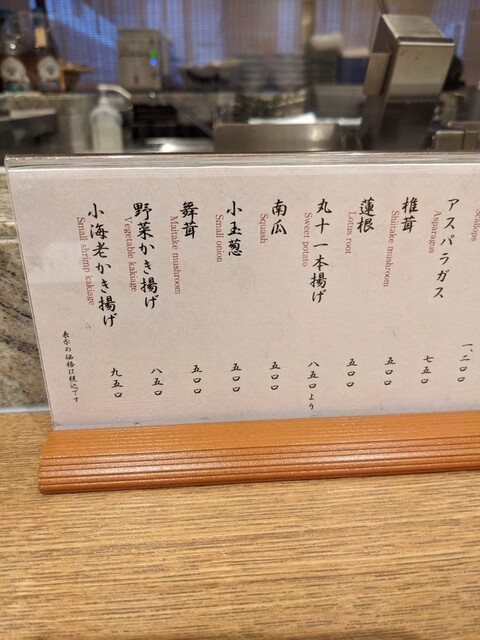 Scallops
一、二〇〇
アスパラガス
Asparagus
七五〇
椎茸
Shiitake mushroom
五〇〇
蓮根
Lotus root
五〇〇
丸十一本揚げ
Sweet potato
八五〇より
南瓜
Squash
五〇〇
小玉葱
Small onion
五〇〇
舞茸
Maitake mushroom
五〇〇
野菜かき揚げ
Vegetable kakiage
八五〇
小海老かき揚げ
Small shrimp kakiage
九五〇
表示の価格は税込です